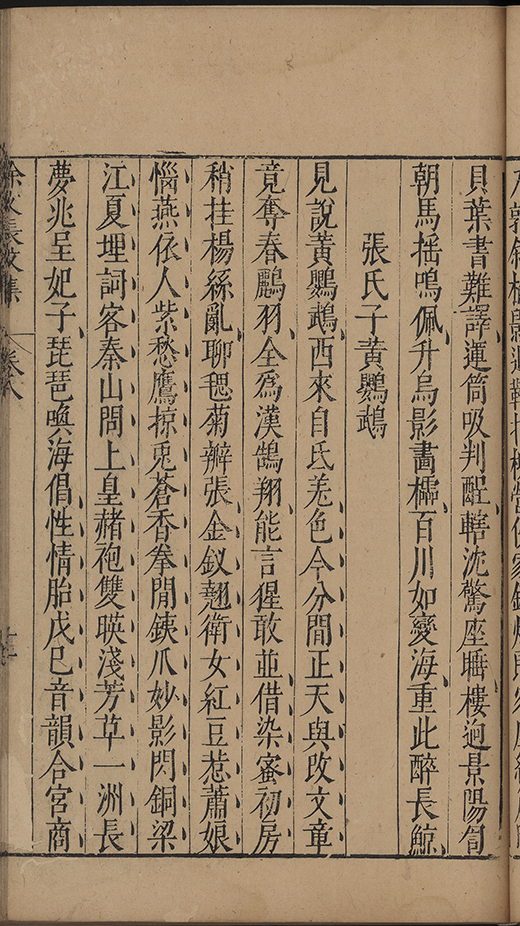 貝葉書難譯運筒吸判酲轄沈驚座睡樓逈景陽訇
朝馬揺鳴佩升烏影畵櫺百川如變海重此醉長鯨
張氏子黄鸚鵡
見説黄鸚鵡西來自氐羌色今分間正天與改文章
竟奪春鸝羽全爲漢鵠翔能言猩敢並借染蜜初房
稍挂楊絲亂聊毸菊辦張金釵翹衛女紅豆惹蕭娘
惱燕依人紫愁鷹掠兎蒼香拳閒銕爪妙影閃銅梁
江夏埋詞客秦山問上皇赭袍雙暎淺芳草一洲長
夢兆呈妃子琵琶喚海倡性情胎戊巳音韻合宮商
徐文長文集
卷八